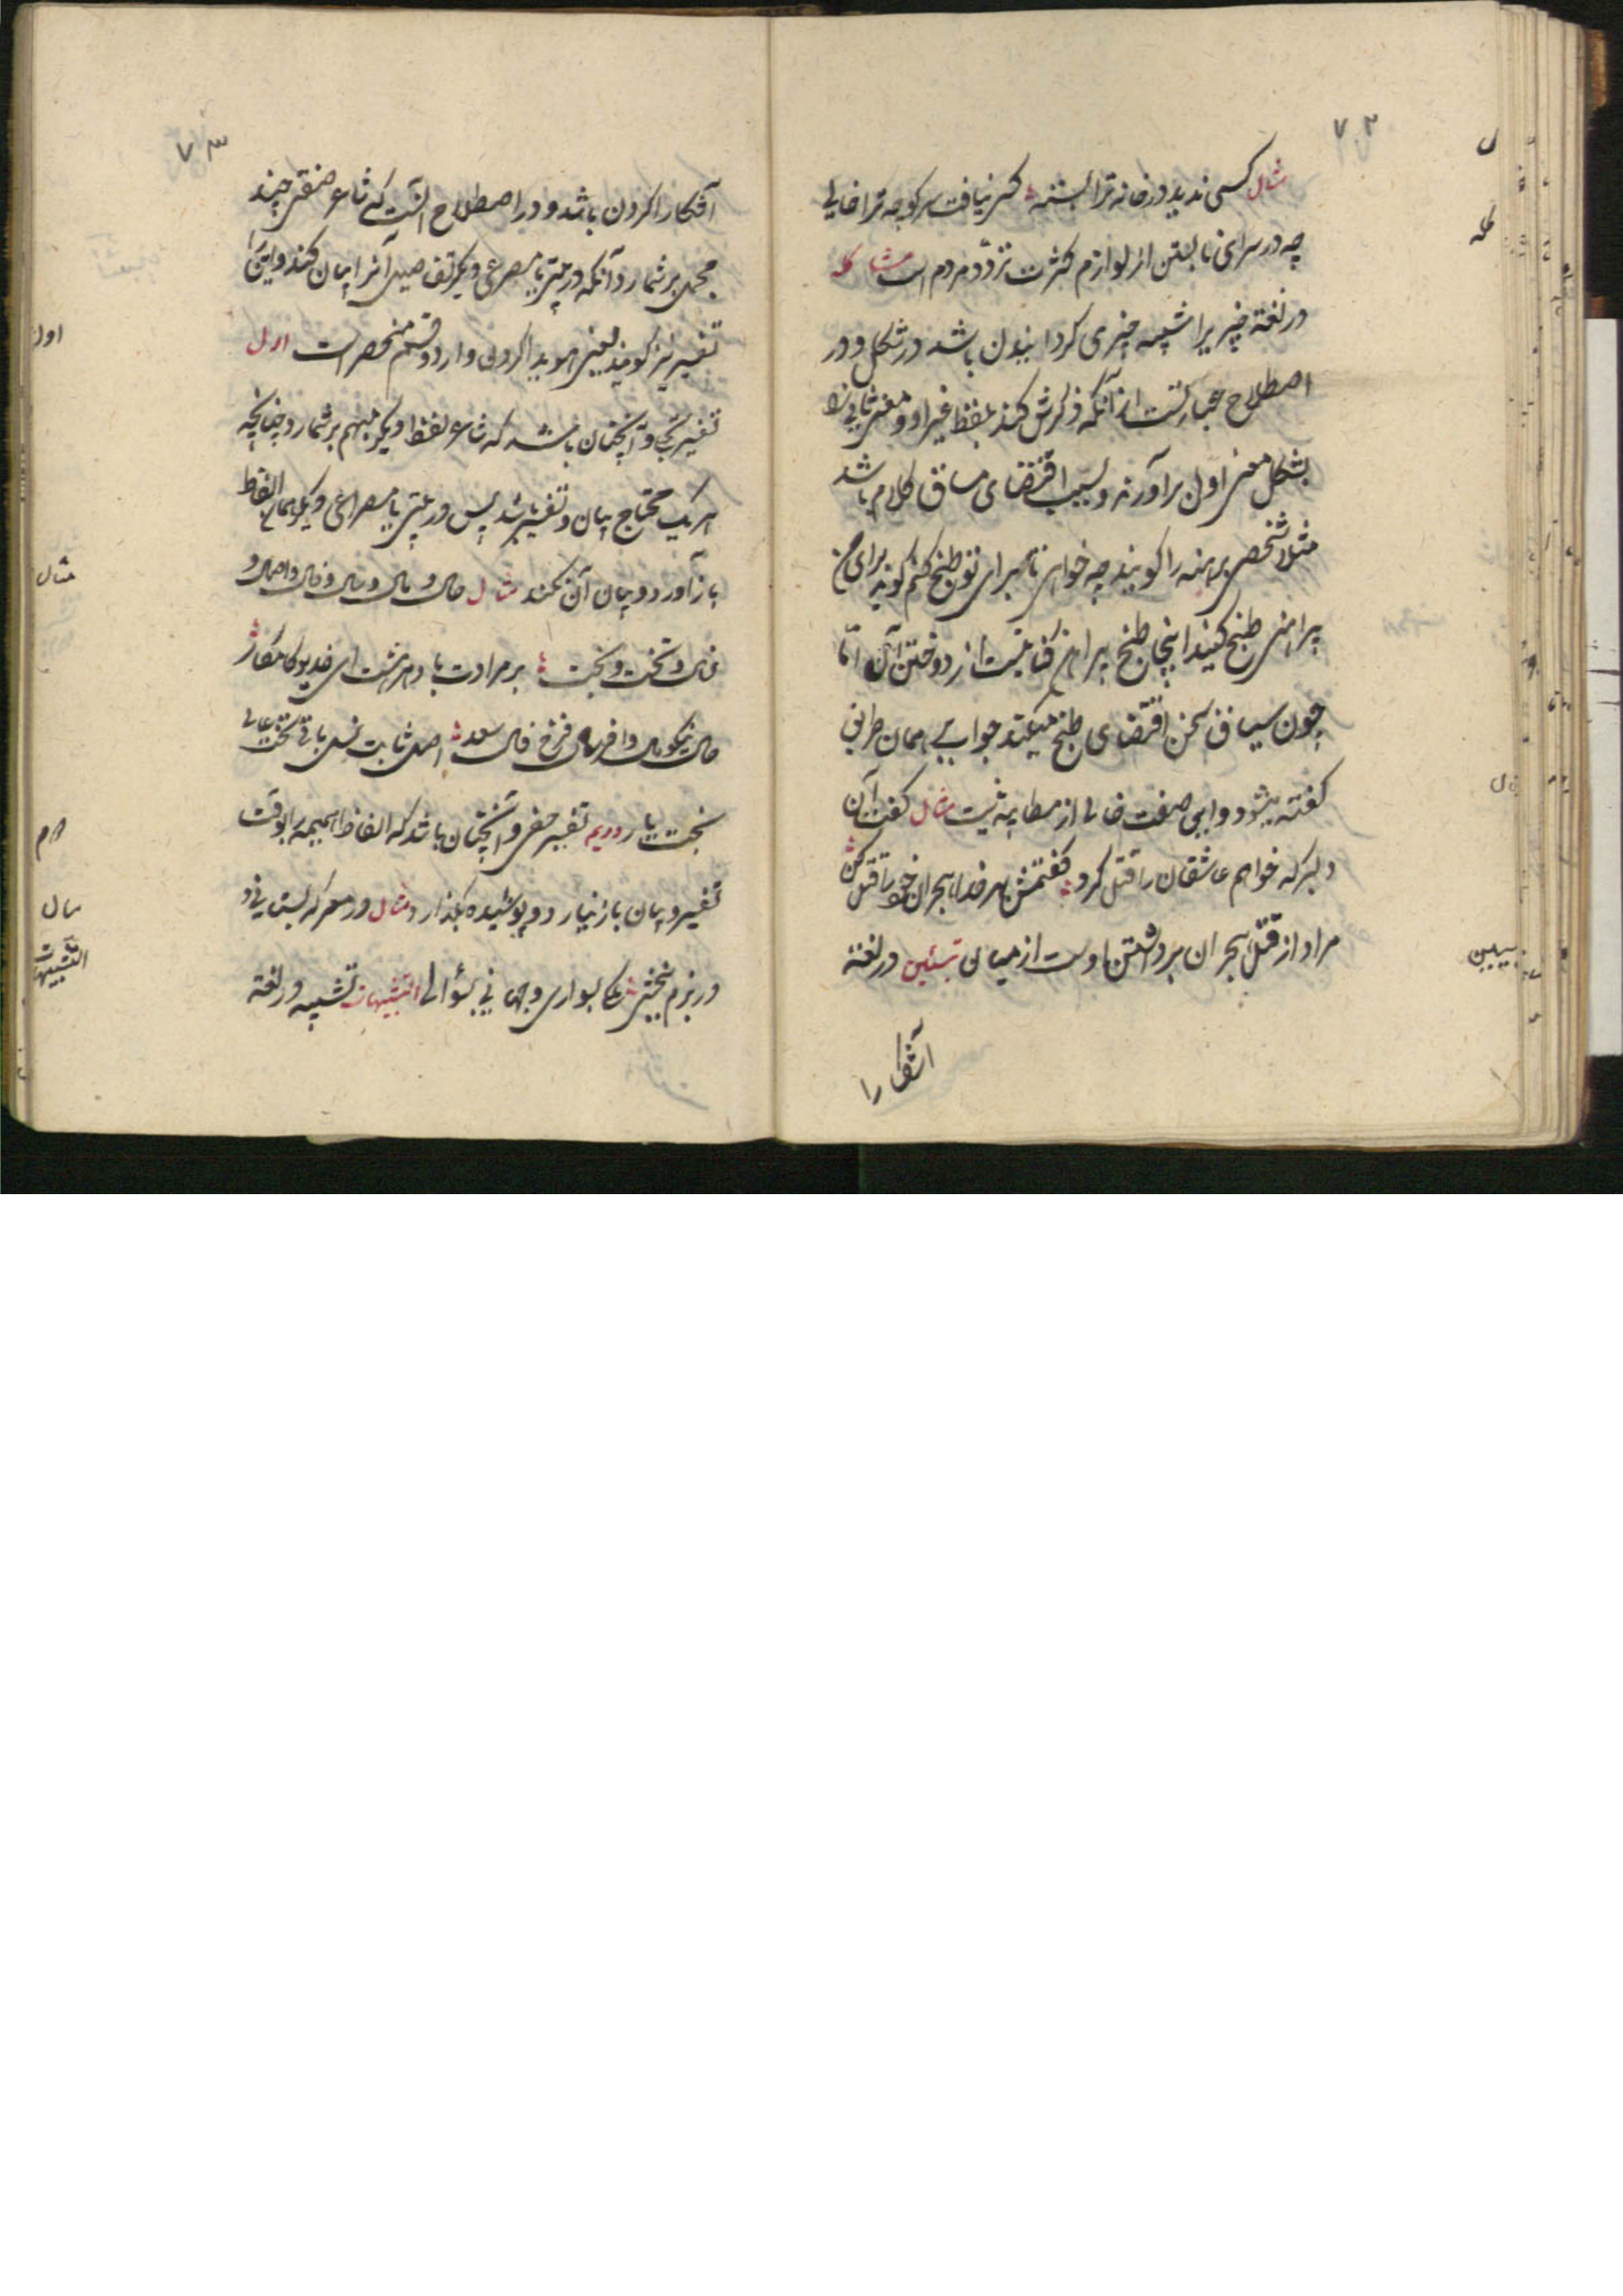 ۷۲
مثال کسی ندید در خانه ترا بسته کس نیافت سر کوچه ترا خالی
چه در سرای نابستن از لوازم کثرت تردّد مردم است مشاکله
در لغة چیزیرا شبیه چیزی گردانیدن باشد در شکل و در
اصطلاح عبارتست از آنکه ذکرش کند بلفظ غیر او و معنی ثانی را
بشکل معنی اول برآورند و بسبب اقتضای مساق کلام باشد
مثلا شخصی برهنه را گویند چه خواهی تا برای تو طبخ کنم گوید برای من
پیراهنی طبخ کنید اینجا طبخ پیراهن کنایتست از دوختن آن امّا
چون سیاق سخن اقتضای طبخ میکند جواب بهمان طریق
گفته میشود و این صنعت خالی از مطایبه نیست مثال گفت آن
دلبر که خواهم عاشقان را قتل کرد گفتمش بهر خدا هجران خود را قتل کن
مراد از قتل هجران برداشتن اوست از میان تبیین در لغة
آشکارا
۷۳
آشکارا کردن باشد و در اصطلاح آنست که شاعر صفتی چند
مجمل برشمارد آنکه در بیتی یا مصرعی دیگر تفاصیل آنرا بیان کند و این را
تفسیر نیز گویند یعنی هویدا کردن و از دو قسم منحصر است اول
تفسیر جلی و آنچنان باشد که شاعر لفظ دیگر مبهم برشمارد چنانچه
هر یک محتاج بیان و تفسیر باشد پس در بیتی یا مصراعی دیگر همان الفاظ
باز آورد و بیان آن بکند مثال حال و مال و سال و فال و اصل و
نسل و تخت و بخت بر مرادت باد هر هشت ای خدیو کامکار
حال نیکو مال وافر سال فرّخ فال سعد اصل ثابت نسل باقی تخت عالی
بخت یار دویم تفسیر خفی و آنچنان باشد که الفاظ مبهمه را بوقت
تفسیر و بیان باز نیارد و پوشیده بگذارد مثال در معرکه بستانی و
در بزم ببخشی ملکی بسواری و جهانی بسؤالی التشبیهات تشبیه در لغة
اول
مثال
دوم
مثال
التشبیهات